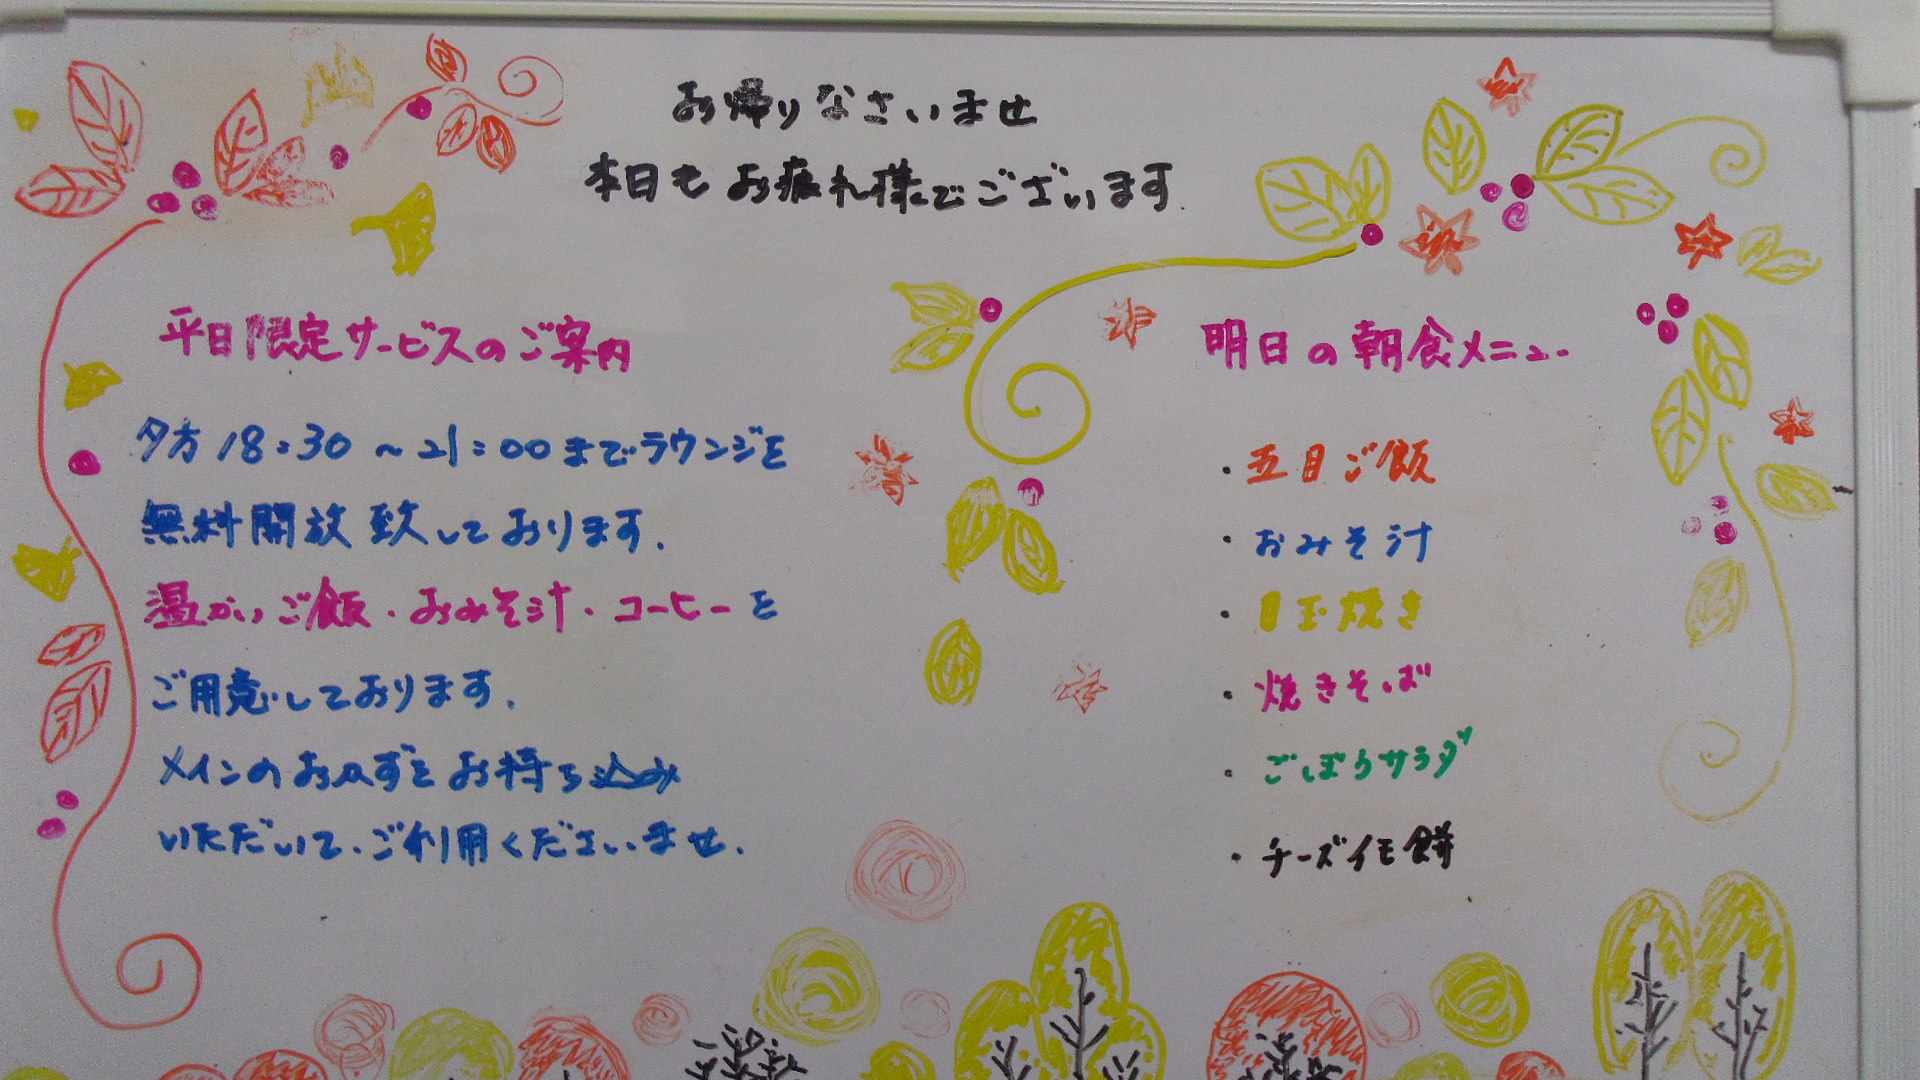 お帰りなさいませ
本日もお疲れ様でございます.
平日限定サービスのご案内
夕方18:30～21:00までラウンジを
無料開放致しております.
温かいご飯・おみそ汁・コーヒーを
ご用意しております.
メインのおかずをお持ち込み
いただいて、ご利用くださいませ.
明日の朝食メニュー
・五目ご飯
・おみそ汁
・目玉焼き
・焼きそば
・ごぼうサラダ
・チーズイモ餅